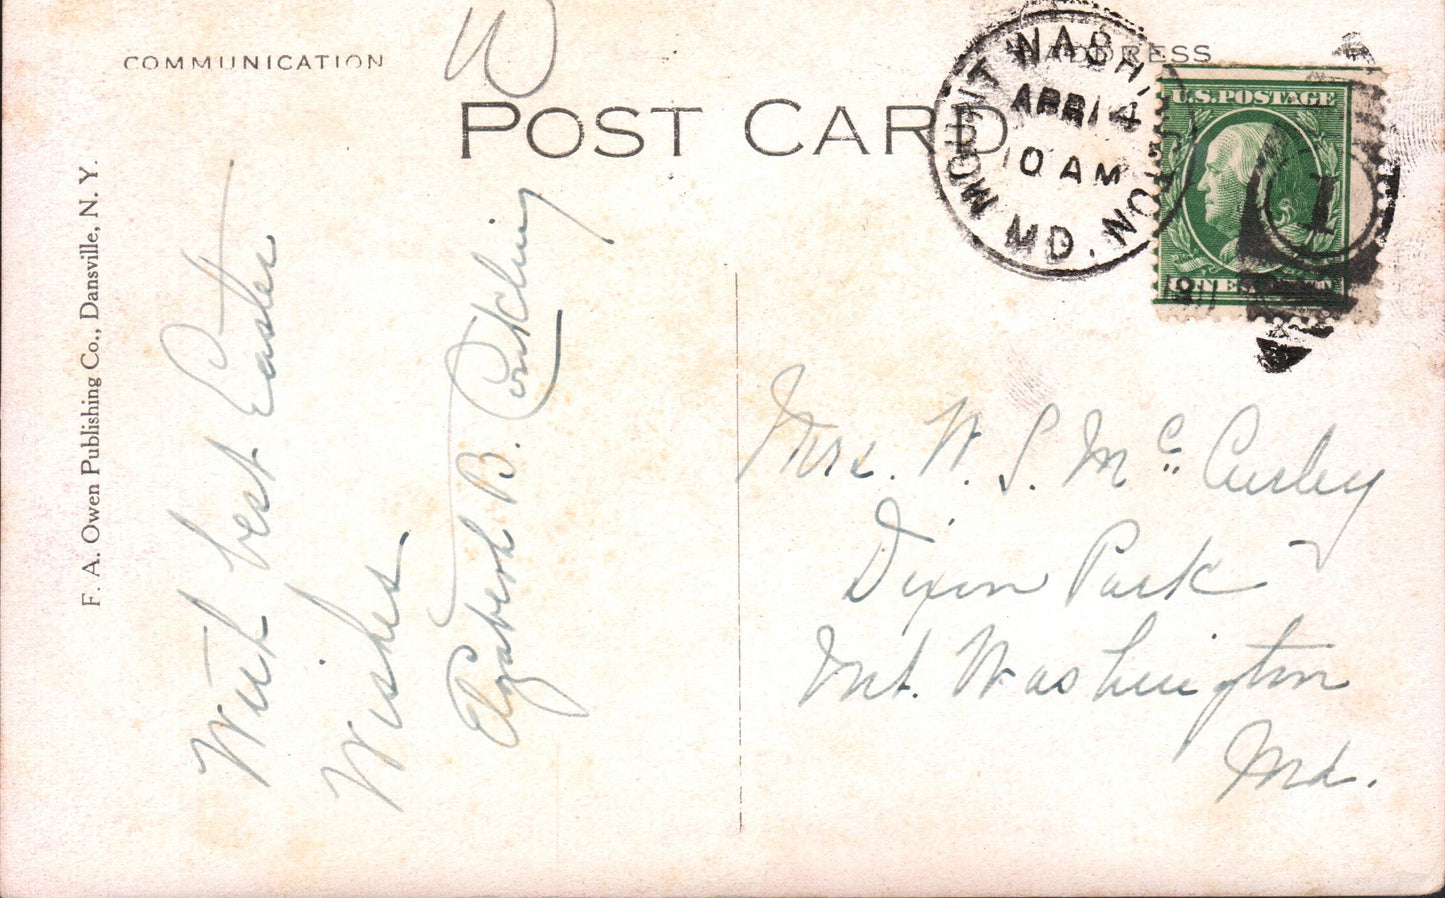 COMMUNICATION
ADDRESS
POST CARD
MOUNT WASHINGTON
APR 14
10 AM
MD.
1911
U.S.POSTAGE
1
F. A. Owen Publishing Co., Dansville, N. Y.
With best Easter
Wishes
Elizabeth B. Conkling
Mrs. W. S. McCurley
Dixon Park
Mt. Washington
Md.